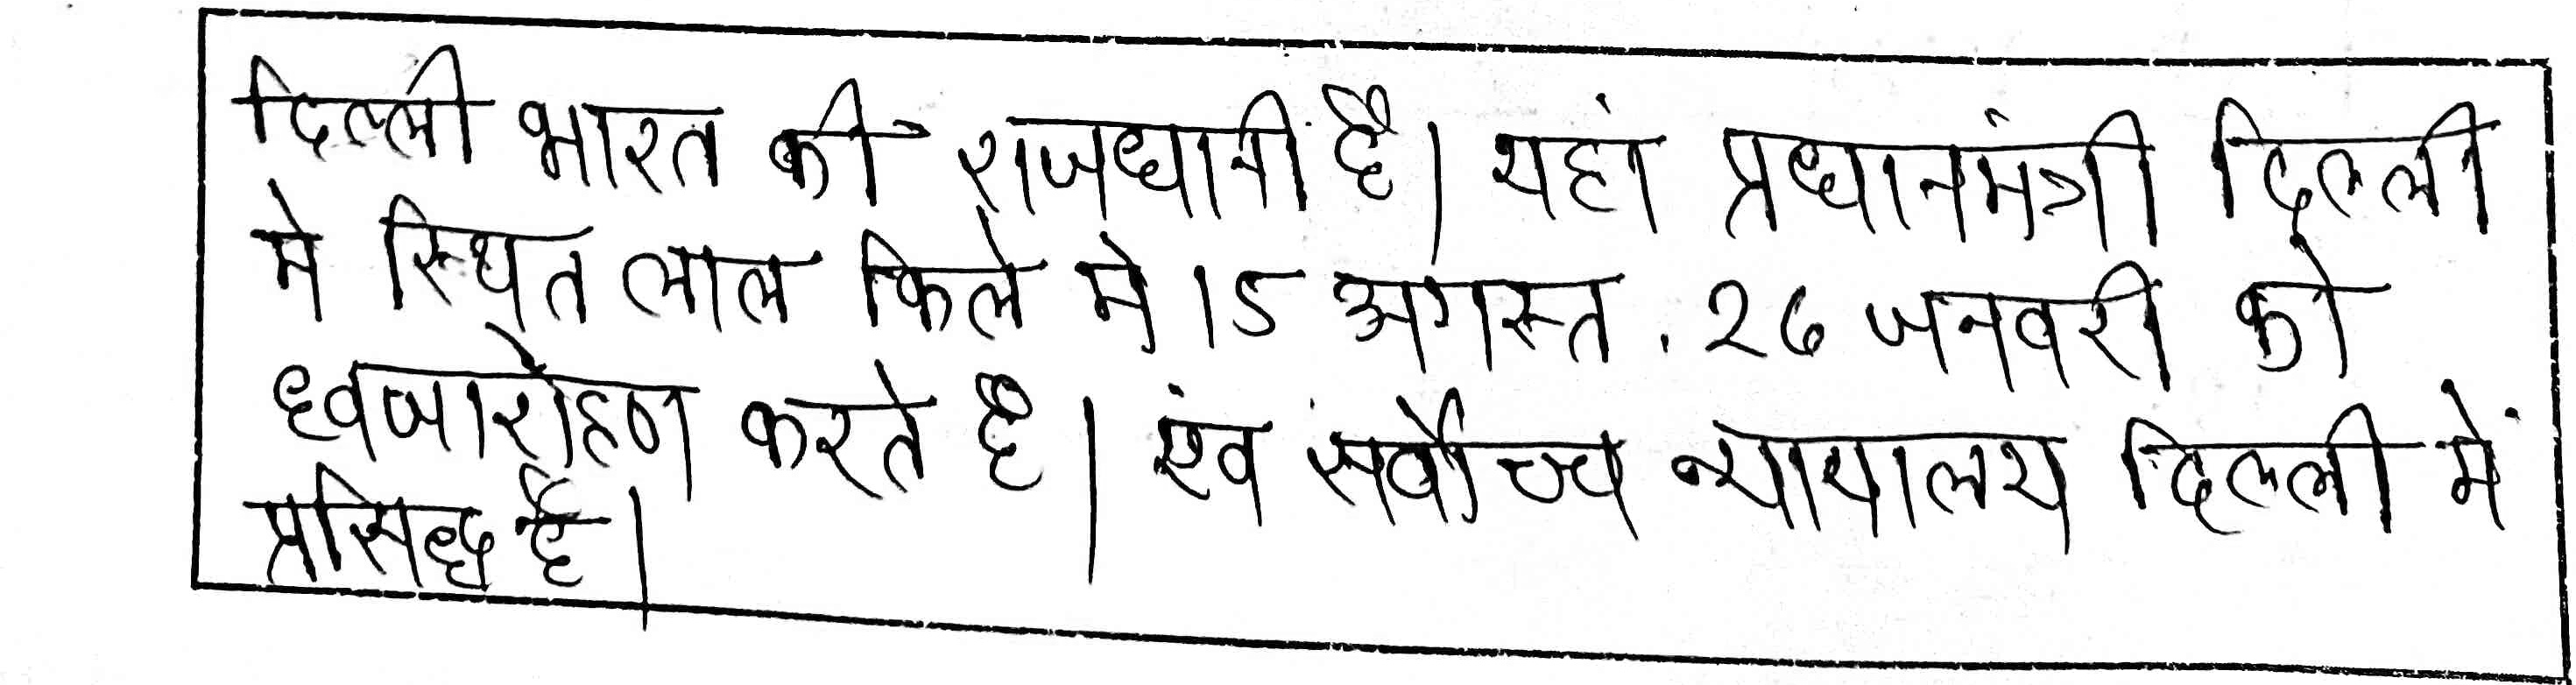 दिल्ली भारत की राजधानी है। यहां प्रधानमंत्री दिल्ली
मे स्थित लाल किले मे 15 अगस्त . 26 जनवरी को
ध्वजारोहण करते है। एंव सर्वोच्च न्यायालय दिल्ली में
प्रसिद्ध है।